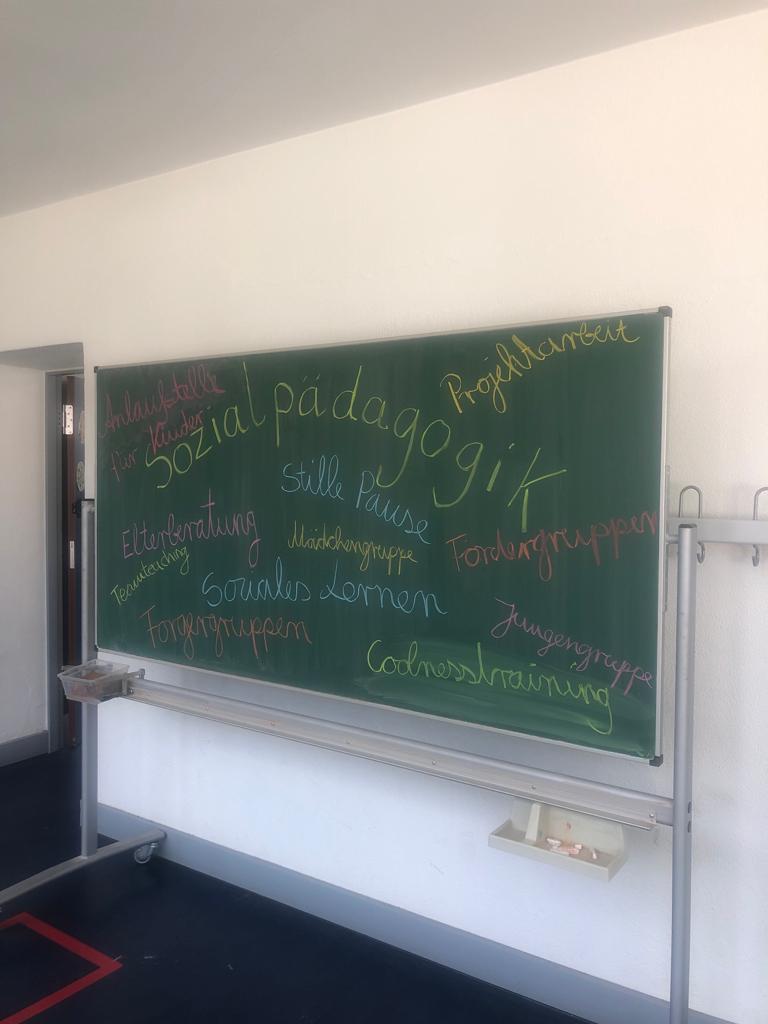 Anlaufstelle
für Kinder
Sozialpädagogik
Projektarbeit
Stille Pause
Elterberatung
Mädchengruppe
Fördergruppen
Teamteaching
Soziales Lernen
Forgergruppen
Jungengruppe
Coolnesstraining